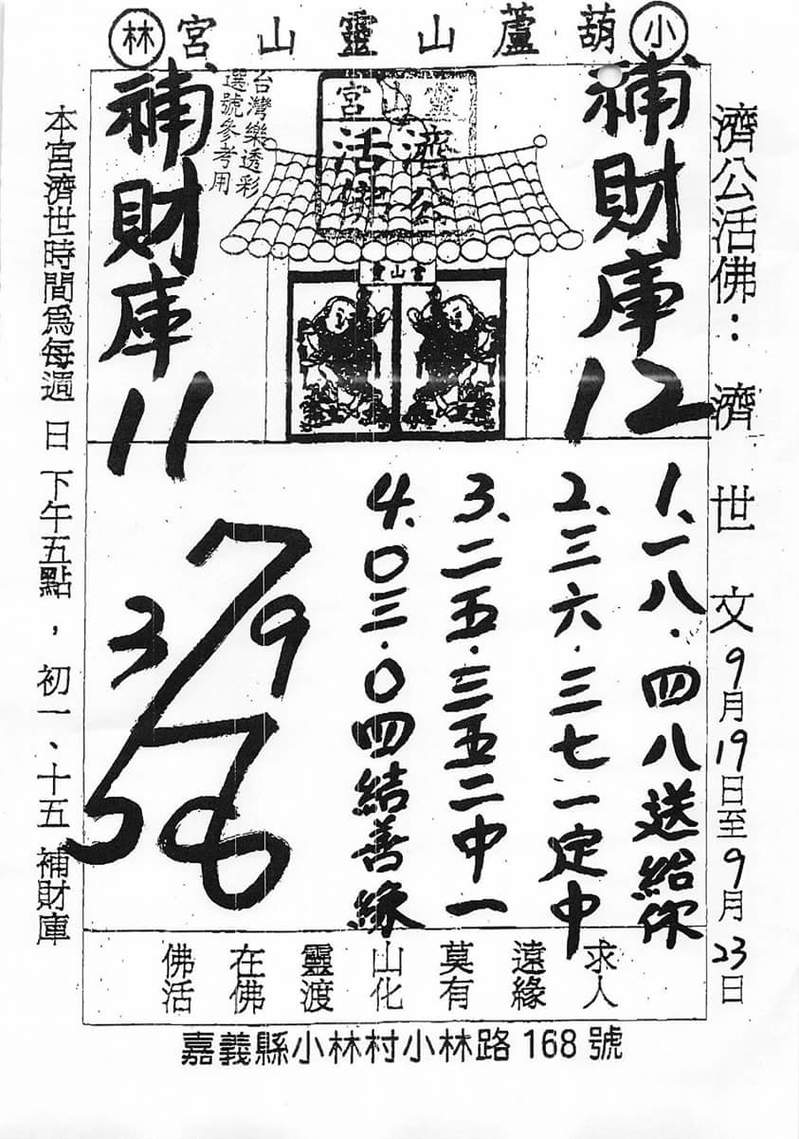 小林 葫蘆山靈山宮
濟公活佛：濟世文 9月19日至9月23日
補財庫12
靈山宮
濟公
活佛
靈山宮
台灣樂透彩
選號參考用
補財庫11
1、一八．四八送給你
2、三六．三七一定中
3、二五．三五二中一
4、０三．０四結善緣
79
3
56
求人
遠緣
莫有
山化
靈渡
在佛
佛活
本宮濟世時間為每週日下午五點，初一、十五補財庫
嘉義縣小林村小林路168號